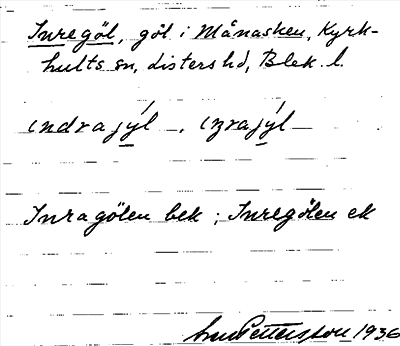 Inregöl, göl i Månasken, Kyrk-
hults sn, Listers hd, Blek. l.
indrajýl –, izrajýl –
Inragölen bek ; Inregölen ek
Pettersson 1936